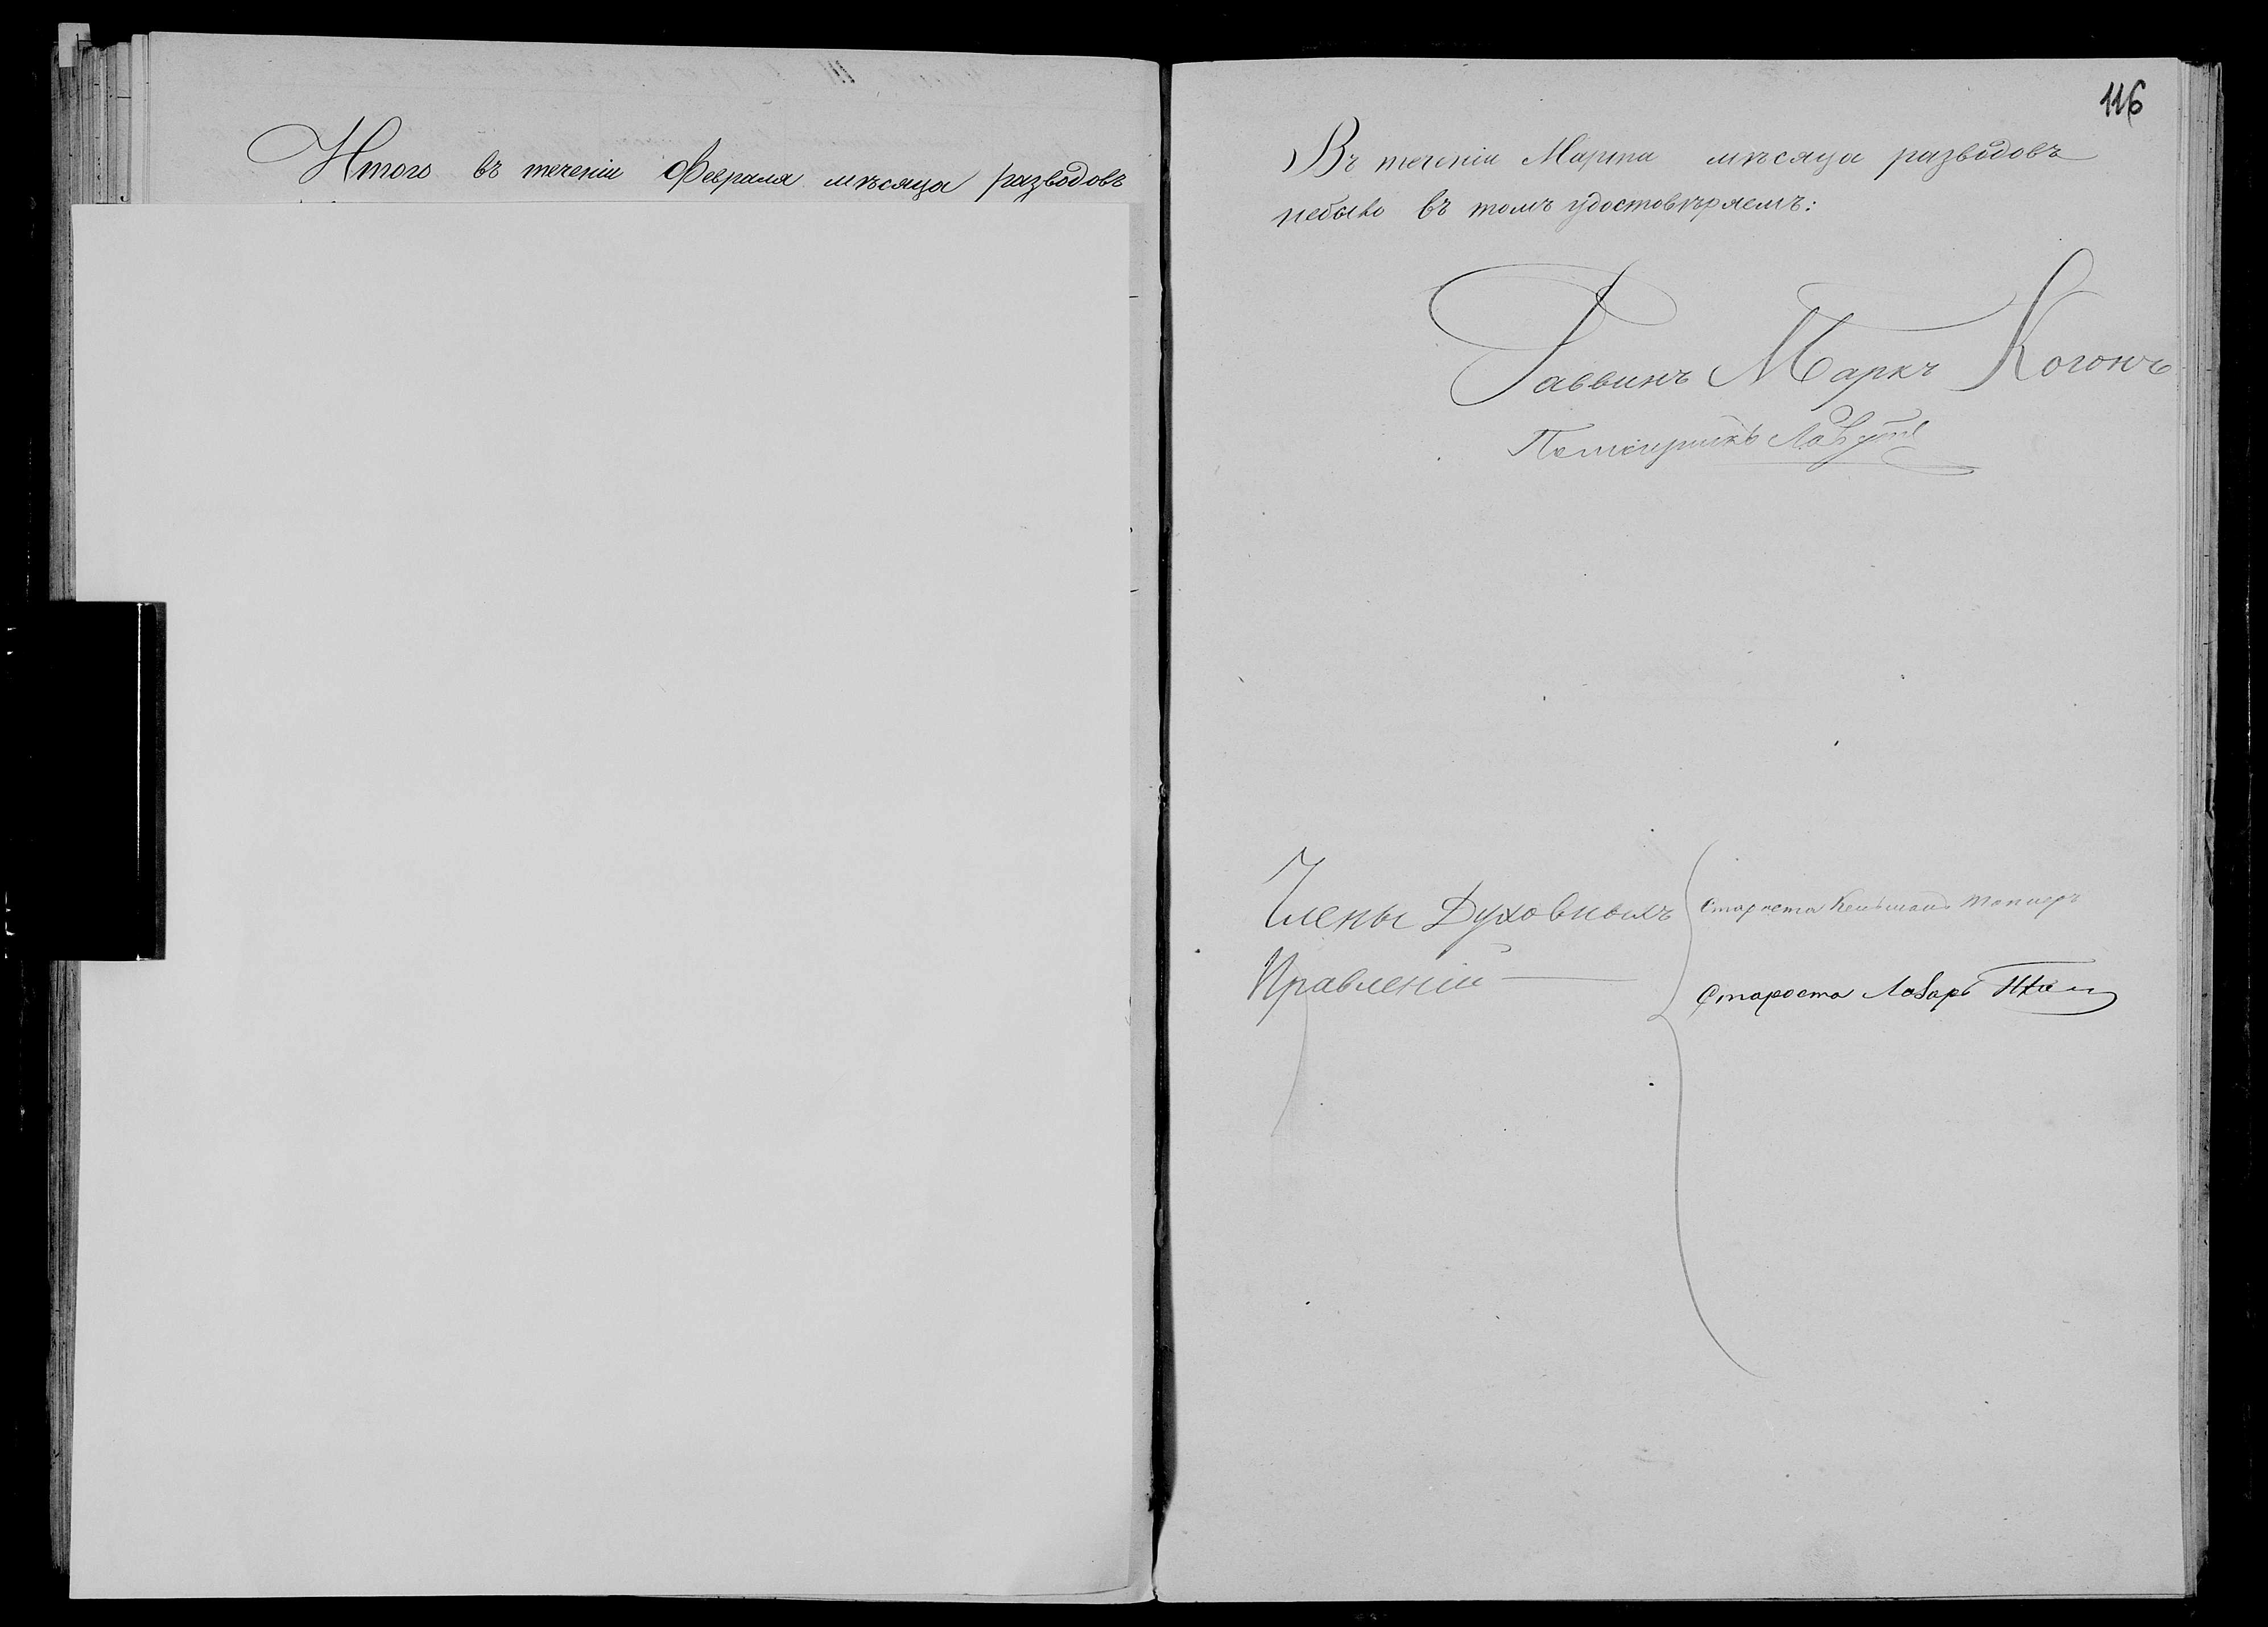 Итого въ теченіи Февраля мѣсяца разводовъ
116
Въ теченіи Марта мѣсяца разводовъ
небыло въ томъ удостовѣряемъ:
Раввинъ Маркъ Когонъ
Члены Духовныхъ
Правленій
Староста
Староста Лазарь